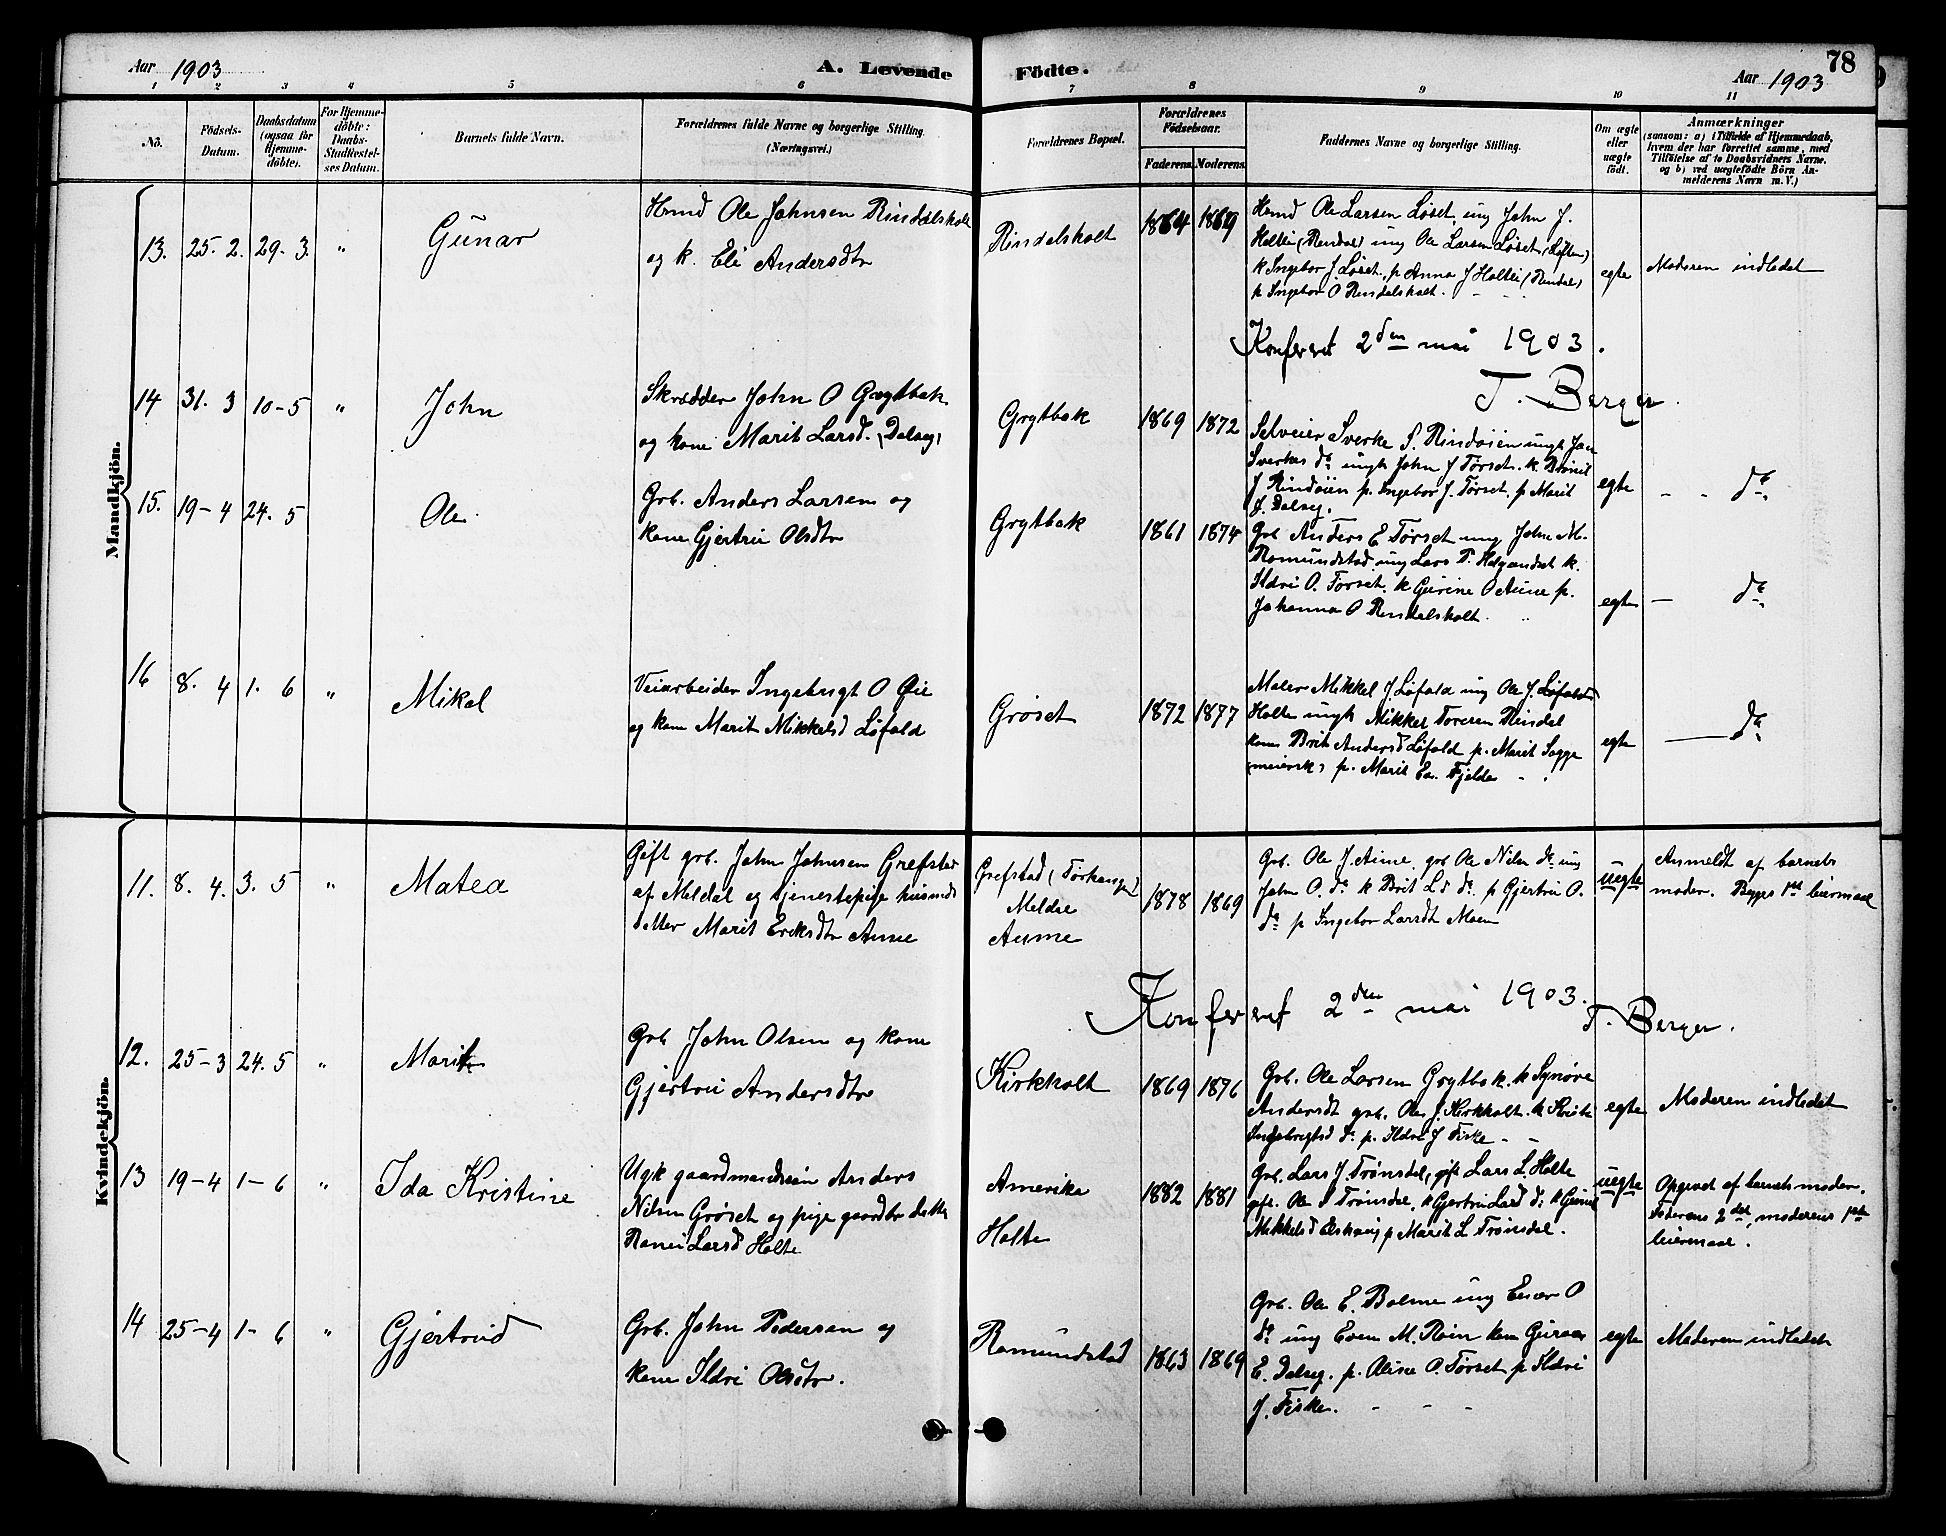 78
Aar 1903
A. Levende Födte.
Aar 1903
1 2 3 4 5 6 7 8 9 10 11
No.
Födsels-
Datum.
Daabsdatum
(ogsaa for
Hjemme-
döbte).
For Hjemme-
döbte:
Daabs-
Stadfæstel-
ses Datum.
Barnets fulde Navn.
Forældrenes fulde Navne og borgerlige Stilling.
(Næringsvei.)
Forældrenes Bopæl.
Forældrenes
Födselsaar.
Faderens. Moderens.
Faddernes Navne og borgerlige Stilling.
Om ægte
eller
uægte
födt.
Anmærkninger
(saasom: a) i Tilfælde af Hjemmedaab,
hvem der har forrettet samme, med
Tilföielse af to Daabsvidners Navne,
og b) ved uægtefödte Börn An-
melderens Navn m. V.)
Mandkjön.
13. 25. 2. 29. 3. " Gunar
Hmd Ole Johnsen Rindalsholt
og k. Eli Andersdtr
Rindalsholt 1864 1869
Hmd Ole Larsen Løset, ung John J.
Holten (Rendal) ung Ole Larsen Løset (Løften)
k Ingebor J. Løset, p Anna J Holten (Rendal)
p Ingebor O Rendalsholt.
egte Moderen indledet
Konferert 2den mai 1903.
T. Berger.
14 31. 3 10-5 " John
Skrædder John O Grytbak
og kone Marit Larsd. (Dalseg)
Grytbak 1869 1872
Selveier Sverke S. Rindøien ungk Jon
Sverkes do ungk John J Tørset. k Brønil
J Rindøien p. Ingebor J. Tørset, p Marit
J. Dalseg.
egte - - do
15. 19-4 24. 5 Ole
Grb. Anders Larsen og
kone Gjertru Olsdtr
Grytbak 1861 1874
Grb Anders E Tørset ung John M.
Romundstad ung Lars T. Helgeandset k.
Ildri O. Tørset. k Gurine O Aune p.
Johanna O Rendalsholt.
egte - do
16 8. 4 1. 6 " Mikal
Veiarbeider Ingebrigt O Øie
og kone Marit Mikkelsd Løfald
Grøset 1872 1877
Maler Mikkel J. Løfald ung Ole J. Løfald
Holte ungk Mikkel Toresen Rindal
kone Brit Andersd Løfald p. Marit Sogge
(meiersk) p. Marit En. Fjelde
egte - do
Kvindekjön.
11. 8. 4. 3. 5 " Matea
Gift grb. John Johnsen Grefstad
af Meldal og tjenestepige husmds
datter Marit Eriksdtr Aune
Grefstad
Meldal
Aune
1878 1869
Grb. Ole J. Aune, grb Ole Nilsn do ung
John O. do k Brit L do do. p Gjertru O.
do p Ingebor Larsdt Moen
uegte
Anmeldt af barnets
moder. Begges 1ste leiermaal
Konferert 2den mai 1903.
T. Berger.
12. 25-3 24. 5 " Marit
Grb John Olsen og kone
Gjertru Andersdtr
Kirkholt 1869 1876
Grb. Ole Larsen Grytbak. k Synøve
Andersdt grb. Ole J. Kirkholt. k Kristi
Ingebrigtsd do p. Ildri J Fiske
egte Moderen indledet
13 19-4 1-6 " Ida Kristine
Ugk gaardmandssøn Anders
Nilsen Grøset og pige gaardbr datter
Ranei Larsd Holte
Amerika
Holte
1882 1881
Grb. Lars J. Trønsdal, gift Lars L. Holte
gift. Ole J Trønsdal, k Gjertru Larsd do k Guruna
Mikkelsd Elshaug p Marit L Trønsdal.
uegte
Opgivet af barnets moder.
Faderens 2det, moderens 1ste
leiermaal.
14 25-4 1-6 " Gjertrud
Grb. John Pedersen og
kone Ildri Olsdtr.
Romundstad 1863 1869
Grb. Ole E. Bolme ung Einar O
do ung Even M. Røen kone Guroar
E. Dalseg. p. Olise O. Tørset p Ildri
J. Fiske.
egte Moderen indledet